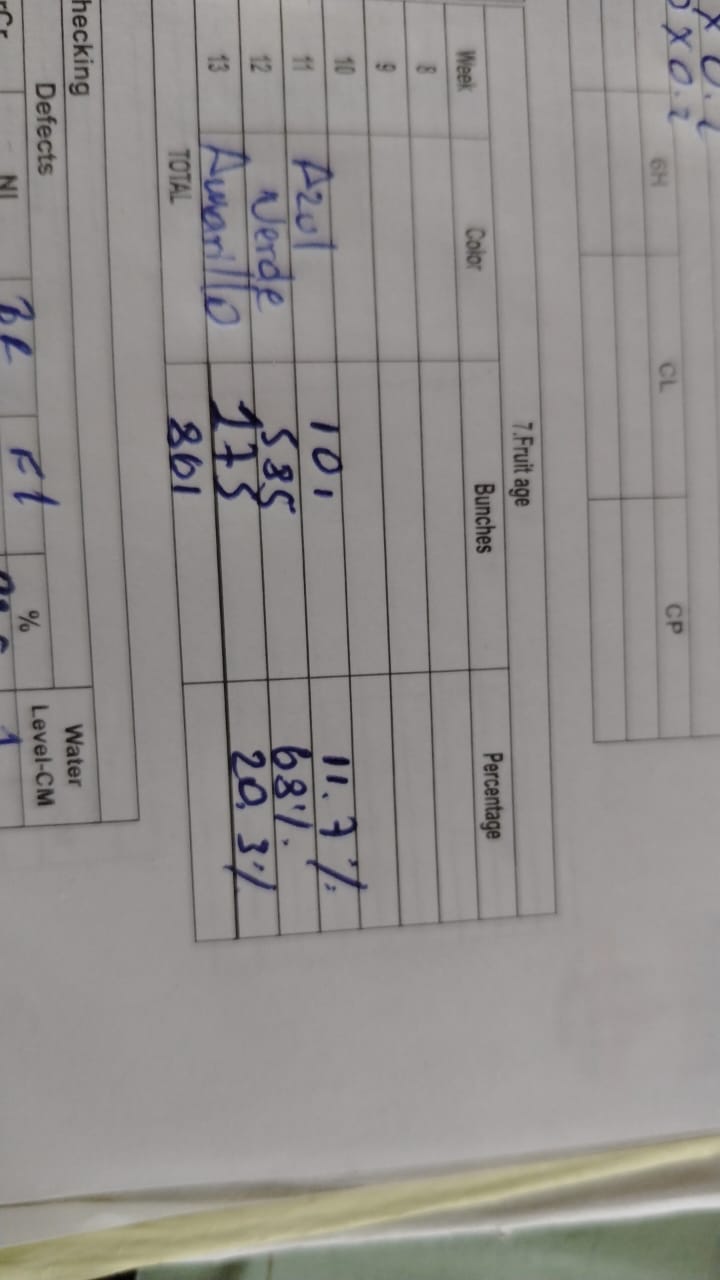 x 0.2
x 0.2
6H CL CP
7.Fruit age
Week Color Bunches Percentage
8
9
10
11 Azul 101 11.7%
12 Verde 585 68%
13 Amarillo 175 20.3%
TOTAL 861
hecking
Defects % Water
Level-CM
NI BR F1 1